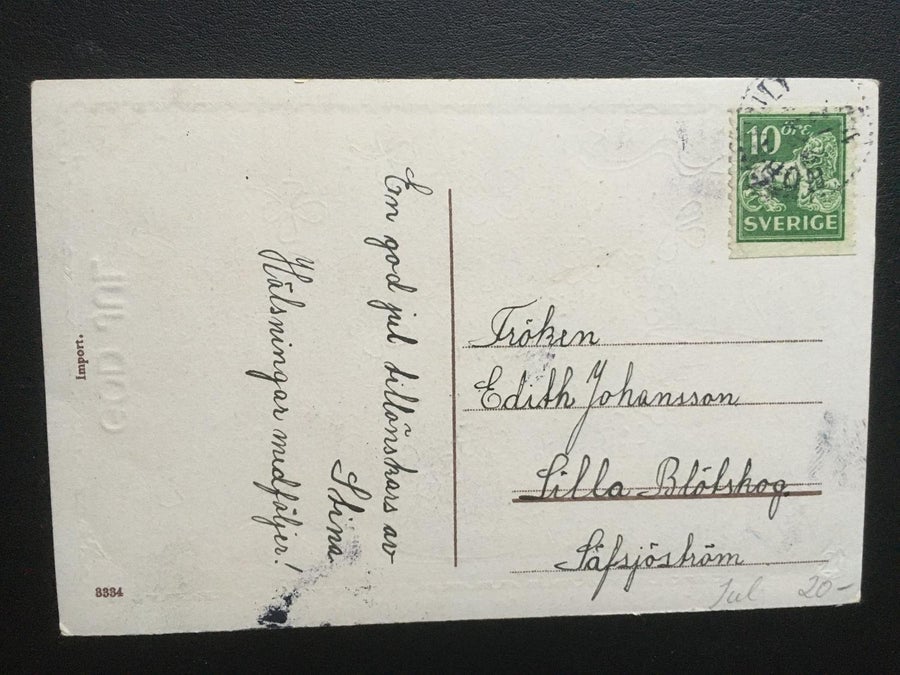 En god jul tillönskars av
Stina
Hälsningar medföljer!
10 ÖRE
SVERIGE
Fröken
Edith Johansson
Lilla Blötskog.
Säfsjöström
Jul 20-
Import.
GOD JUL
3334